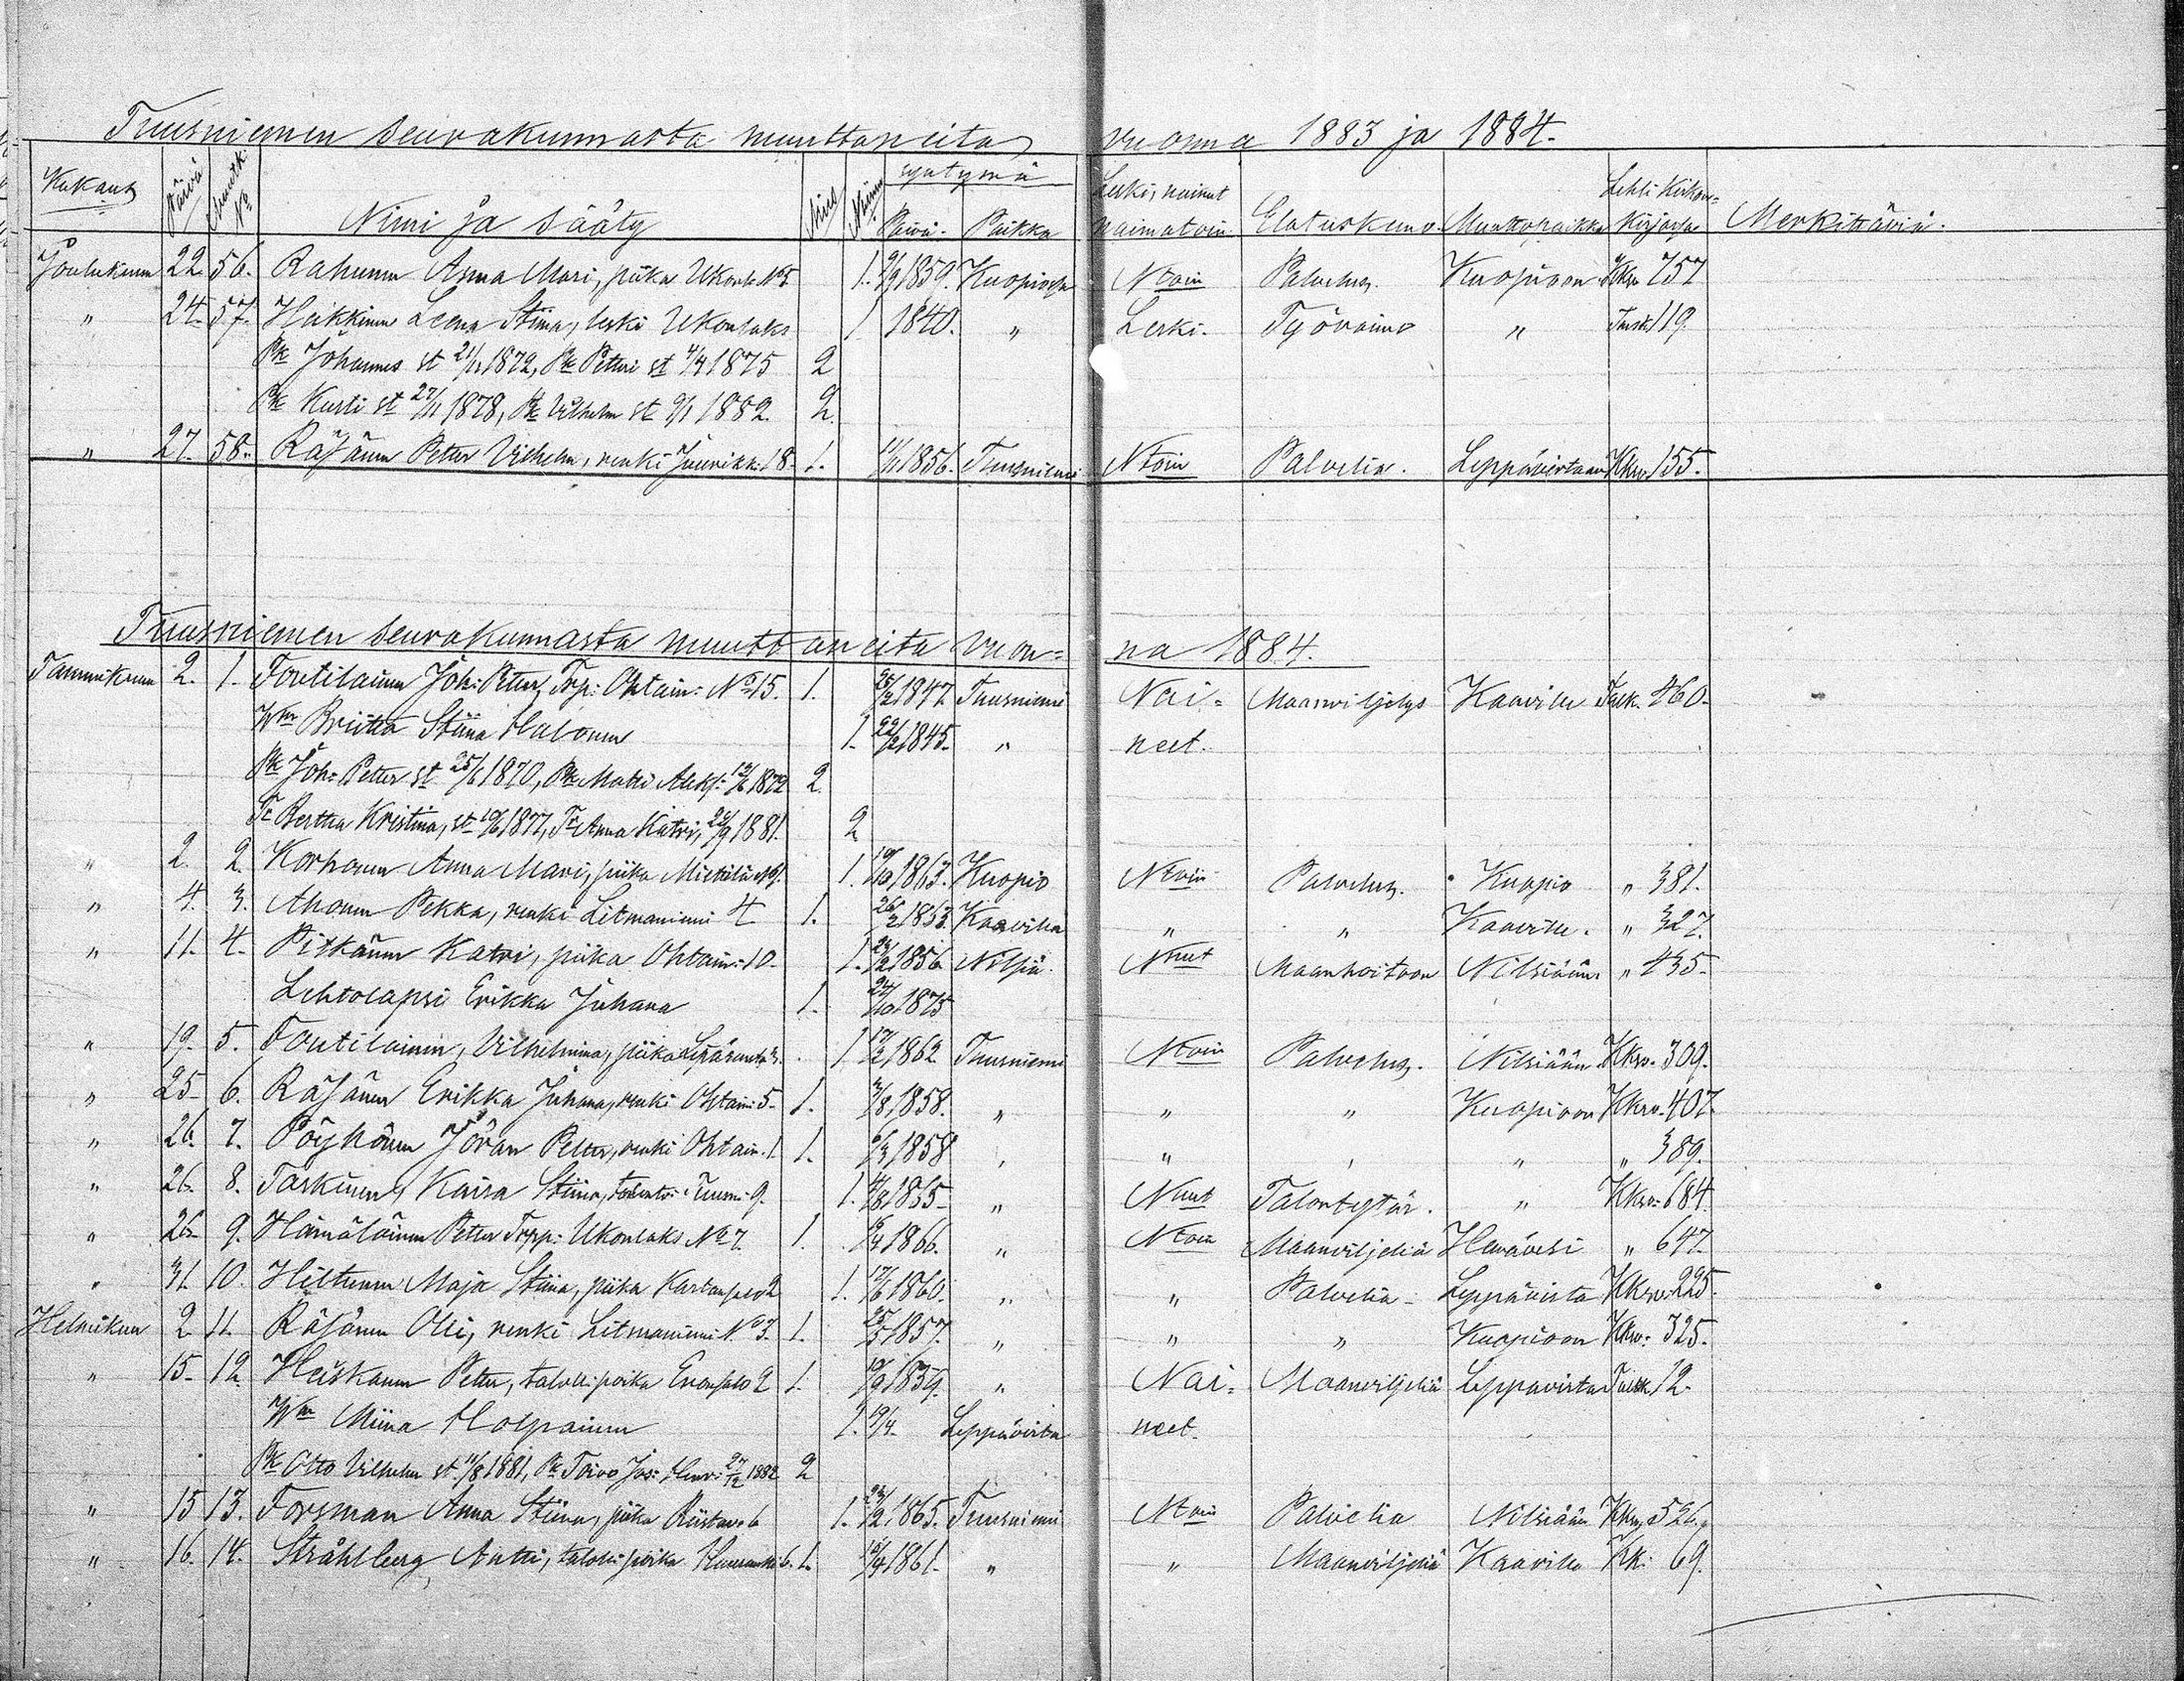 Tuusniemen seurakunnasta muuttaneita vuonna 1883 ja 1884.
Kukausi Päivä Muutt. No Nimi ja sääty Mies Nainen syntymä Päivä. Paikka Leski, nainut naimatoin Elatuskeino. Muuttopaikka Lehti Kirkon= kirjassa Merkittäviä.
Joulukuun 22 56. Rahunen Anna Mari, piika Ukonl. No 5 1. 9/9 1859. Kuopiossa Ntoin Palvelus. Kuopioon Kkrv 757
" 24. 57. Heikkinen Leena Stiina, leski Ukonlaks 1 1840. " Leski. Työvaimo " 119.
Pk Johannes st 21/12 1872, Pk Petteri st 4/4 1875 2
Pk Kusti st 27/11 1878, Pk Vilhelm st 9/1 1882. 2.
" 27. 58. Räsänen Petter Vilhelm, renki Juurikk: 18. 1. 1856. Tuusniemi Ntoin Palvelia. Leppävirtaan Kkrv. 155.
Tuusniemen seurakunnasta muuttaneita vuon= na 1884.
Tammikuun 2. 1. Toutilainen Joh: Petter, Trp: Ohtain: No 15. 1. 25/2 1847. Tuusniemi Nai= Maanviljelys Kaaville Talk. 460.
Wm Briitta Stiina Halonen 1. 22/2 1845. " neet.
Pk Joh= Petter st 25/6 1870, Pk Matti Aleks: 12/6 1872 2.
Tr Bertha Kristina, st 10/6 1877, Tr Anna Katri, 20/9 1881. 2
" 2. 2. Korhonen Anna Mari, piika 1. 10/10 1863. Kuopio Ntoin Palvelus. Kuopio " 381.
" 4. 3. Ahonen Pekka, renki Litmaniemi 4 1. 26/2 1863. Kaavilla " " Kaaville. " 327.
" 11. 4. Pitkänen Katri, piika Ohtain: 10. 1. 23/12 1856. Nilsiä. Nnut Maanhoitoon Nilsiään " 435.
Lehtolapsi Erikka Juhana 1. 24/10 1875
" 19. 5. Toutilainen, Vilhelmina, piika 1 17/2 1862 Tuusniemi Ntoin Palvelus. Nilsiään Kkrv. 309.
" 25. 6. Räsänen Erikka Juhana, renki Ohtain: 5. 1. 3/8 1858. " " " Kuopioon Kkrv. 407.
" 26. 7. Pöyhönen Jöran Petter, renki Ohtain. 1. 1. 6/3 1858 " " " " " 389.
" 26. 8. Taskinen, Kaisa Stiina, Tuusni 9. 1. 4/8 1865. " Nnut Talontytär. " Kkrv. 684.
" 26. 9. Hämäläinen Petter Trpp: Ukonlaks No 7. 1. 1866. " Ntoin Maanviljeliä Heinävesi " 647.
" 31. 10. Hiltunen Maja Stiina, piika 2 1. 17/6 1860. " " Palvelia. Leppävirta Kkrv. 225.
Helmikuu 2 11. Räsänen Olli, renki Litmaniemi No 3. 1. 25/5 1857. " " " Kuopioon Kkrv. 325.
" 15. 12. Heiskanen Petter, taloll: poika Enonsalo 2 1. 10/9 1839. " Nai= Maanviljeliä Leppävirta Talk. 12.
Wm Miina Holopainen 1. 19/4. Leppävirta neet.
Pk Otto Vilhelm st. 11/8 1881, Pk Toivo Jos: Henri 27/12 1882 2
" 15 13. Forsman Anna Stiina, piika Riistav. 6 1. 23/12 1865. Tuusniemi Ntoin Palvelia Nilsiään Kkrv. 526.
" 16. 14. Stråhlberg Antti, taloll: poika 6. 1. 15/4 1861. " " Maanviljeliä Kaaville Kk. 69.